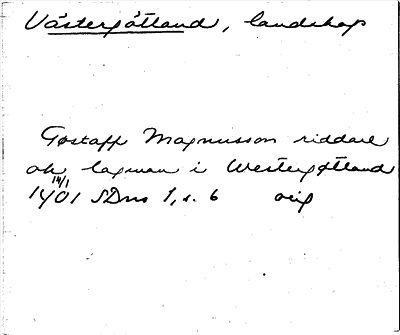 Västergötland, landskap
Gøstaff Magnusson riddare
ok laxman i Westergøtland
14/1
1401 SDns 1, s. 6 orig